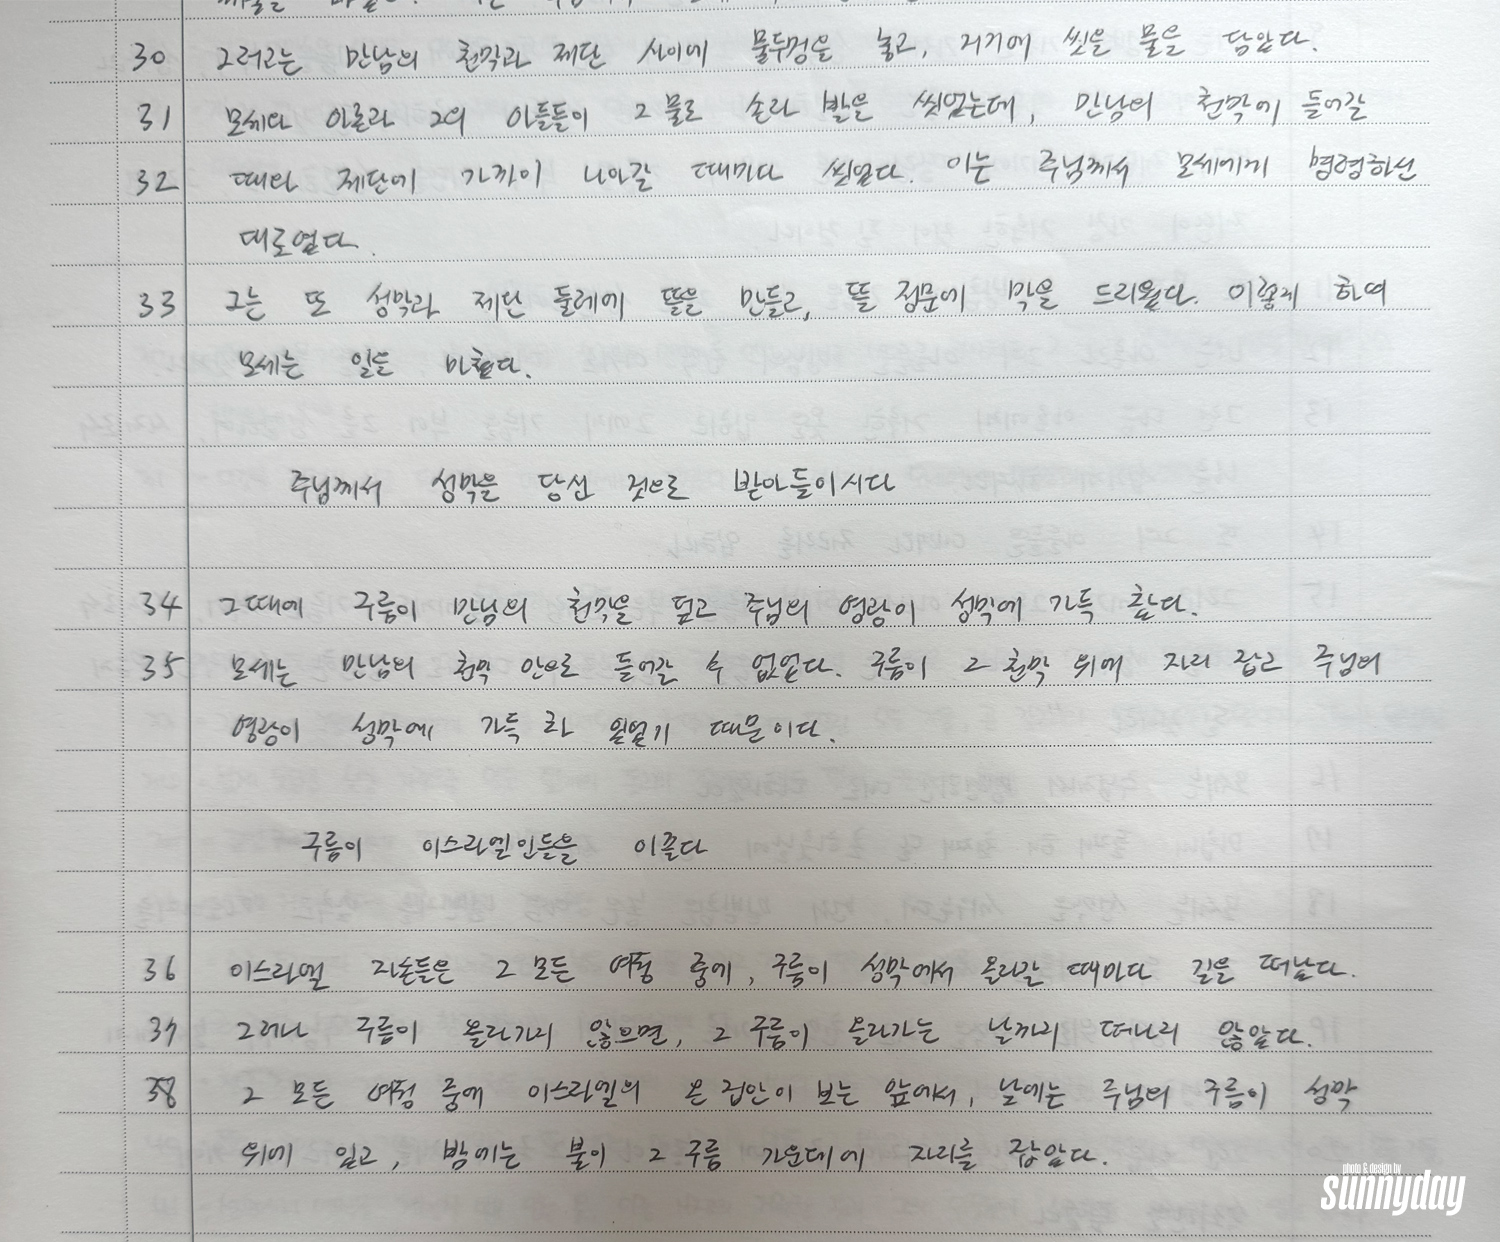 30 그러고는 만남의 천막과 제단 사이에 물두멍을 놓고, 거기에 씻을 물을 담았다.
31 모세와 아론과 그의 아들들이 그 물로 손과 발을 씻었는데, 만남의 천막에 들어갈
32 때와 제단에 가까이 나아갈 때마다 씻었다. 이는 주님께서 모세에게 명령하신
대로였다.
33 그는 또 성막과 제단 둘레에 뜰을 만들고, 뜰 정문에 막을 드리웠다. 이렇게 하여
모세는 일을 마쳤다.
주님께서 성막을 당신 것으로 받아들이시다
34 그때에 구름이 만남의 천막을 덮고 주님의 영광이 성막에 가득 찼다.
35 모세는 만남의 천막 안으로 들어갈 수 없었다. 구름이 그 천막 위에 자리 잡고 주님의
영광이 성막에 가득 차 있었기 때문이다.
구름이 이스라엘인들을 이끌다
36 이스라엘 자손들은 그 모든 여정 중에, 구름이 성막에서 올라갈 때마다 길을 떠났다.
37 그러나 구름이 올라가지 않으면, 그 구름이 올라가는 날까지 떠나지 않았다.
38 그 모든 여정 중에 이스라엘의 온 집안이 보는 앞에서, 낮에는 주님의 구름이 성막
위에 있고, 밤에는 불이 그 구름 가운데에 자리를 잡았다.
photo & design by
sunnyday